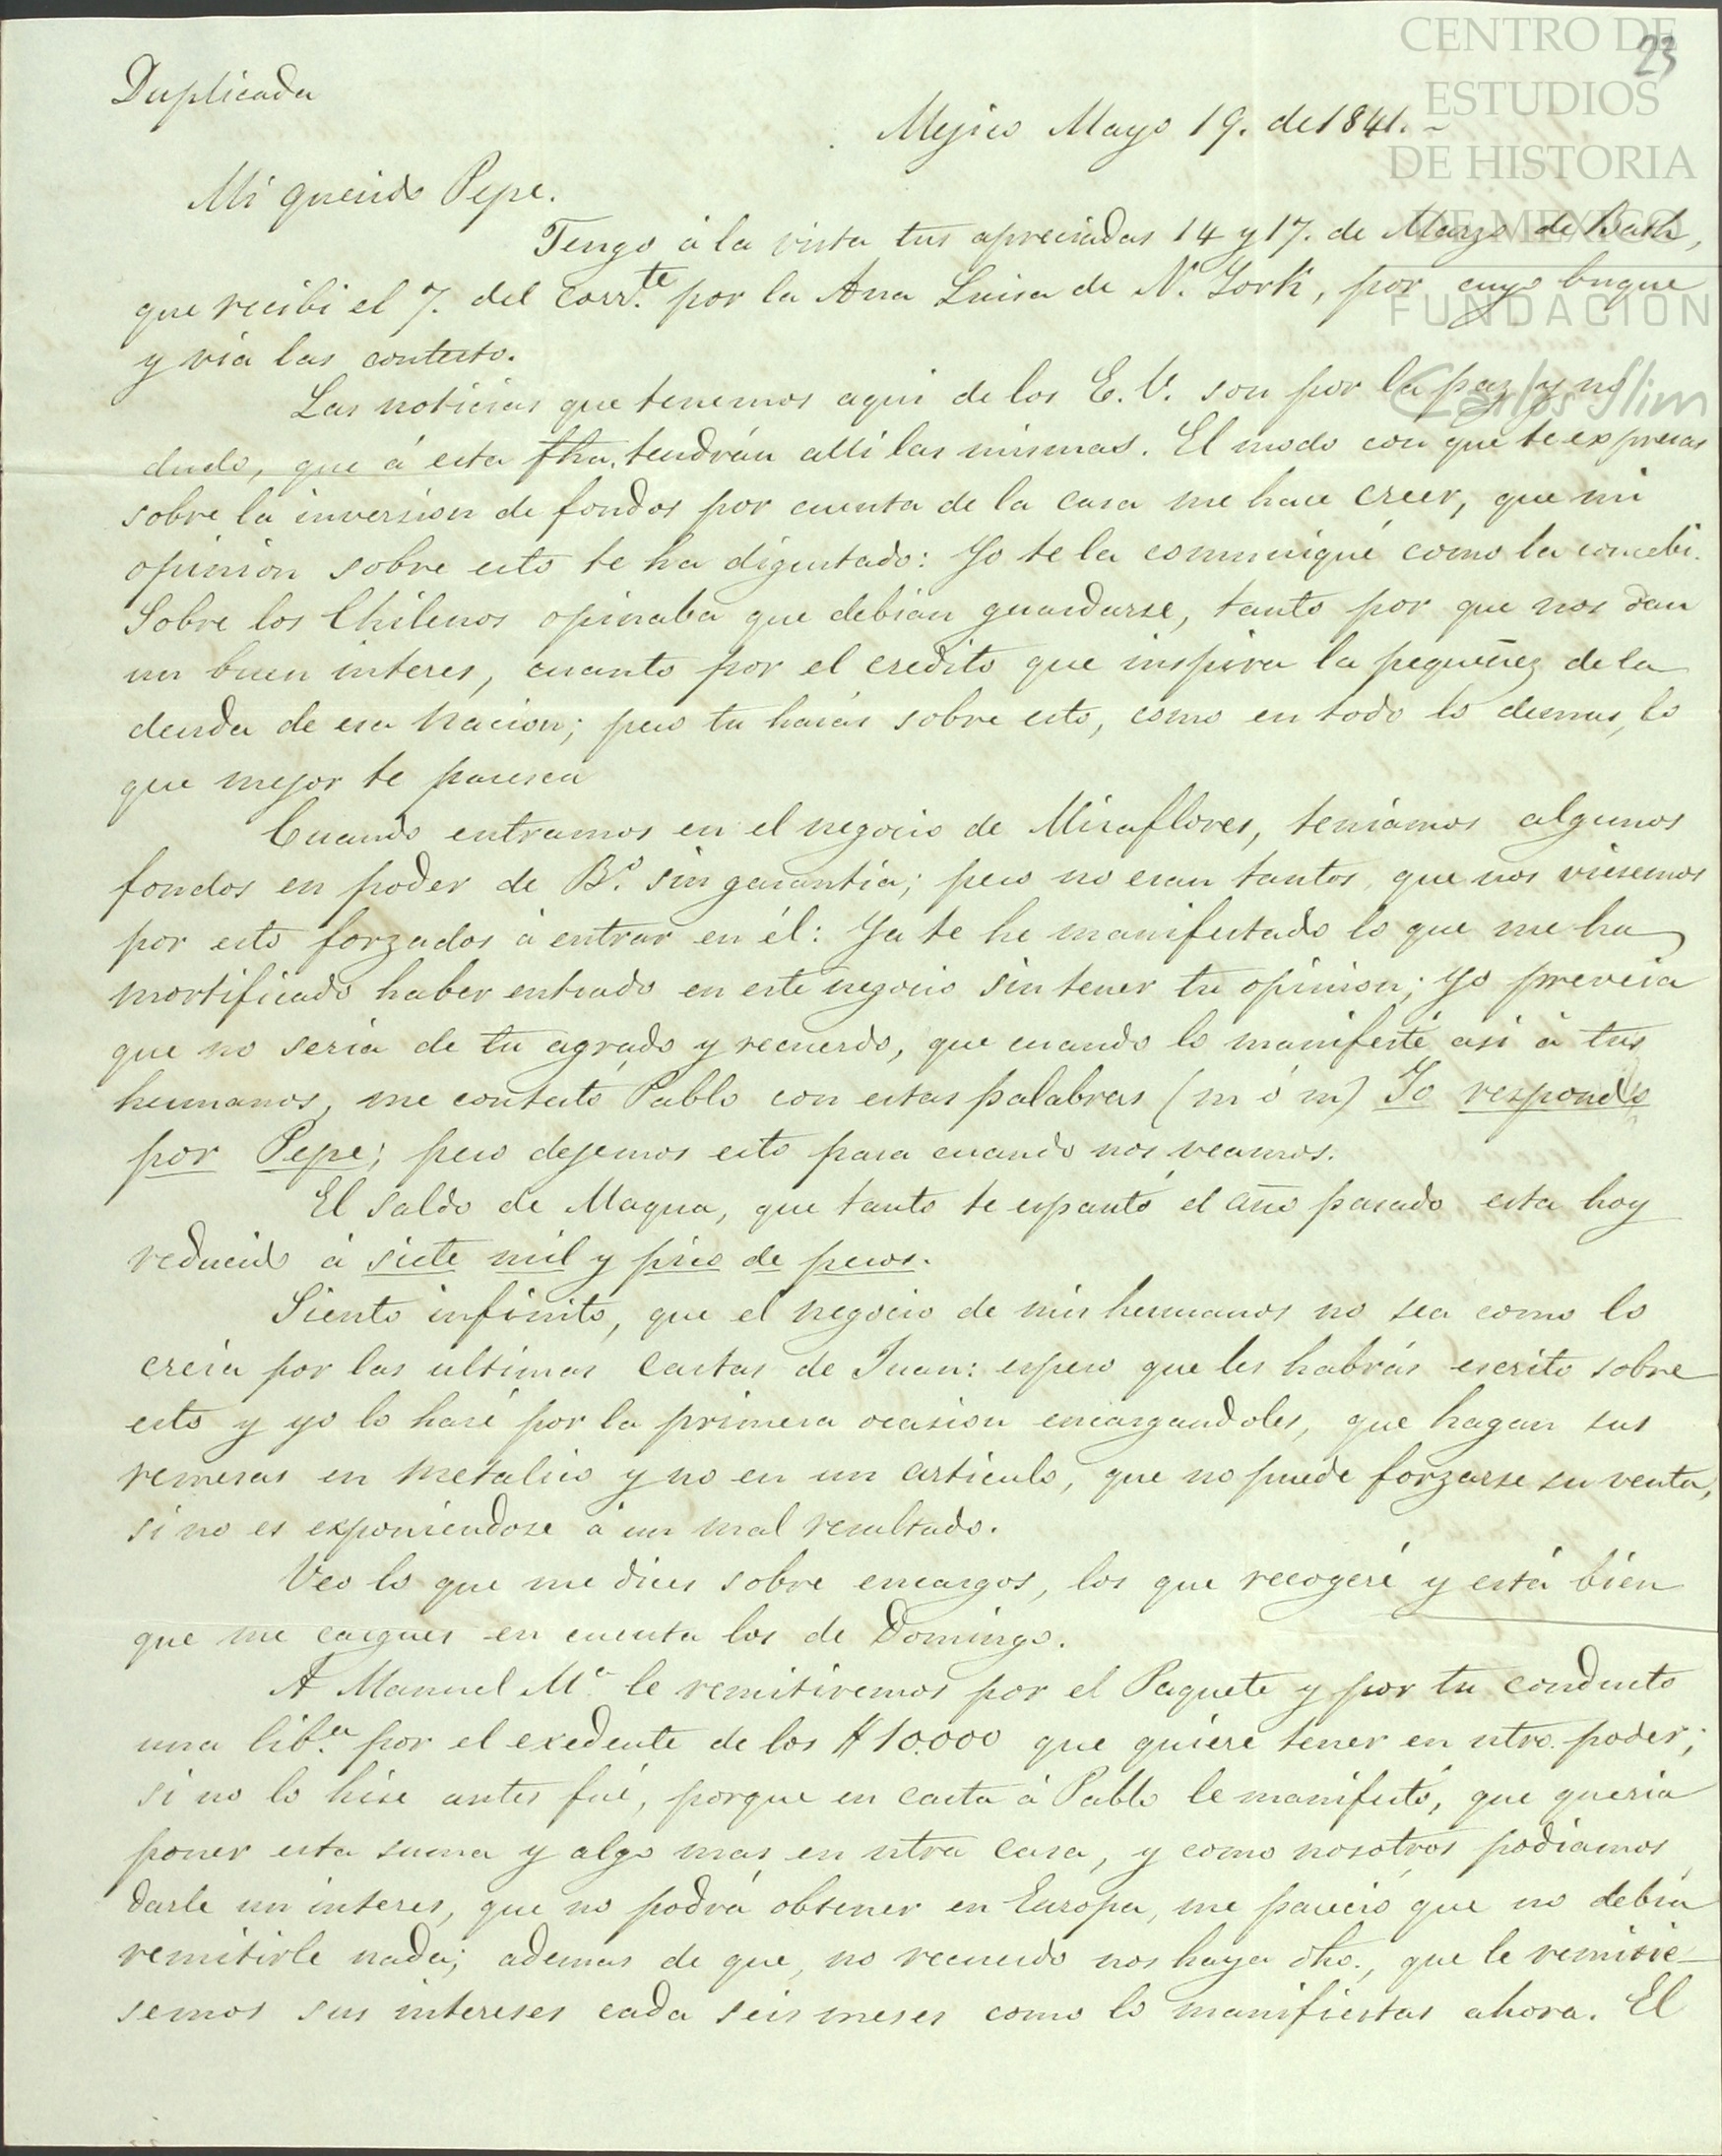 CENTRO DE
ESTUDIOS
DE HISTORIA
DE MEXICO
FUNDACION
Carlos Slim
23
Duplicada
Mejico Mayo 19. de 1841.~
Mi querido Pepe.
Tengo á la vista tus apreciadas 14 y 17. de Marzo de Bath,
que recibi el 7. del corr.te por la Ana Luisa de N. York, por cuyo buque
y via las contesto.
Las noticias que tenemos aqui de los E. U. son por la paz y no
dudo, que á esta fha. tendrán alli las mismas. El modo con que te expresas
sobre la inversion de fondos por cuenta de la casa me hace creer, que mi
opinion sobre esto te ha digustado: Yo te la comuniqué como la concebi.
Sobre los Chilenos opinaba que debian guardarse, tanto por que nos dan
un buen interes, cuanto por el credito que inspira la pequeñez de la
deuda de esa Nacion; pero tu harás sobre esto, como en todo lo demas, lo
que mejor te paresca
Cuando entramos en el negocio de Miraflores, teniamos algunos
fondos en poder de B.o sin garantia; pero no eran tantos, que nos viesemos
por esto forzados á entrar en él: Ya te he manifestado lo que me ha
mortificado haber entrado en este negocio sin tener tu opinion; Yo preveia
que no seria de tu agrado y recuerdo, que cuando lo manifesté asi á tus
hermanos, me contestó Pablo con estas palabras (m ó m) Yo respondo
por Pepe; pero dejemos esto para cuando nos veamos.
El saldo de Maqua, que tanto te espantó el año pasado, esta hoy
reducido á siete mil y pico de pesos.
Siento infinito, que el negocio de mis hermanos no sea como lo
creia por las ultimas cartas de Juan: espero que les habrás escrito sobre
esto y yo lo haré por la primera ocasion encargandoles, que hagan sus
remesas en metalico y no en un articulo, que no puede forzarse su venta,
si no es exponiendose á un mal resultado.
Veo lo que me dices sobre encargos, los que recogeré y está bien
que me cargues en cuenta los de Domingo.
A Manuel M.a le remitiremos por el Paquete y por tu conducto
una lib.a por el exedente de los $10.000 que quiere tener en ntro. poder;
si no lo hise antes fué, porque en carta á Pablo le manifestó, que queria
poner esta suma y algo mas en ntra casa, y como nosotros podiamos
darle un interes, que no podrá obtener en Europa, me pareció que no debia
remitirle nada; ademas de que, no recuerdo nos haya dho., que le remitie-
semos sus intereses cada seis meses como lo manifiestas ahora. El